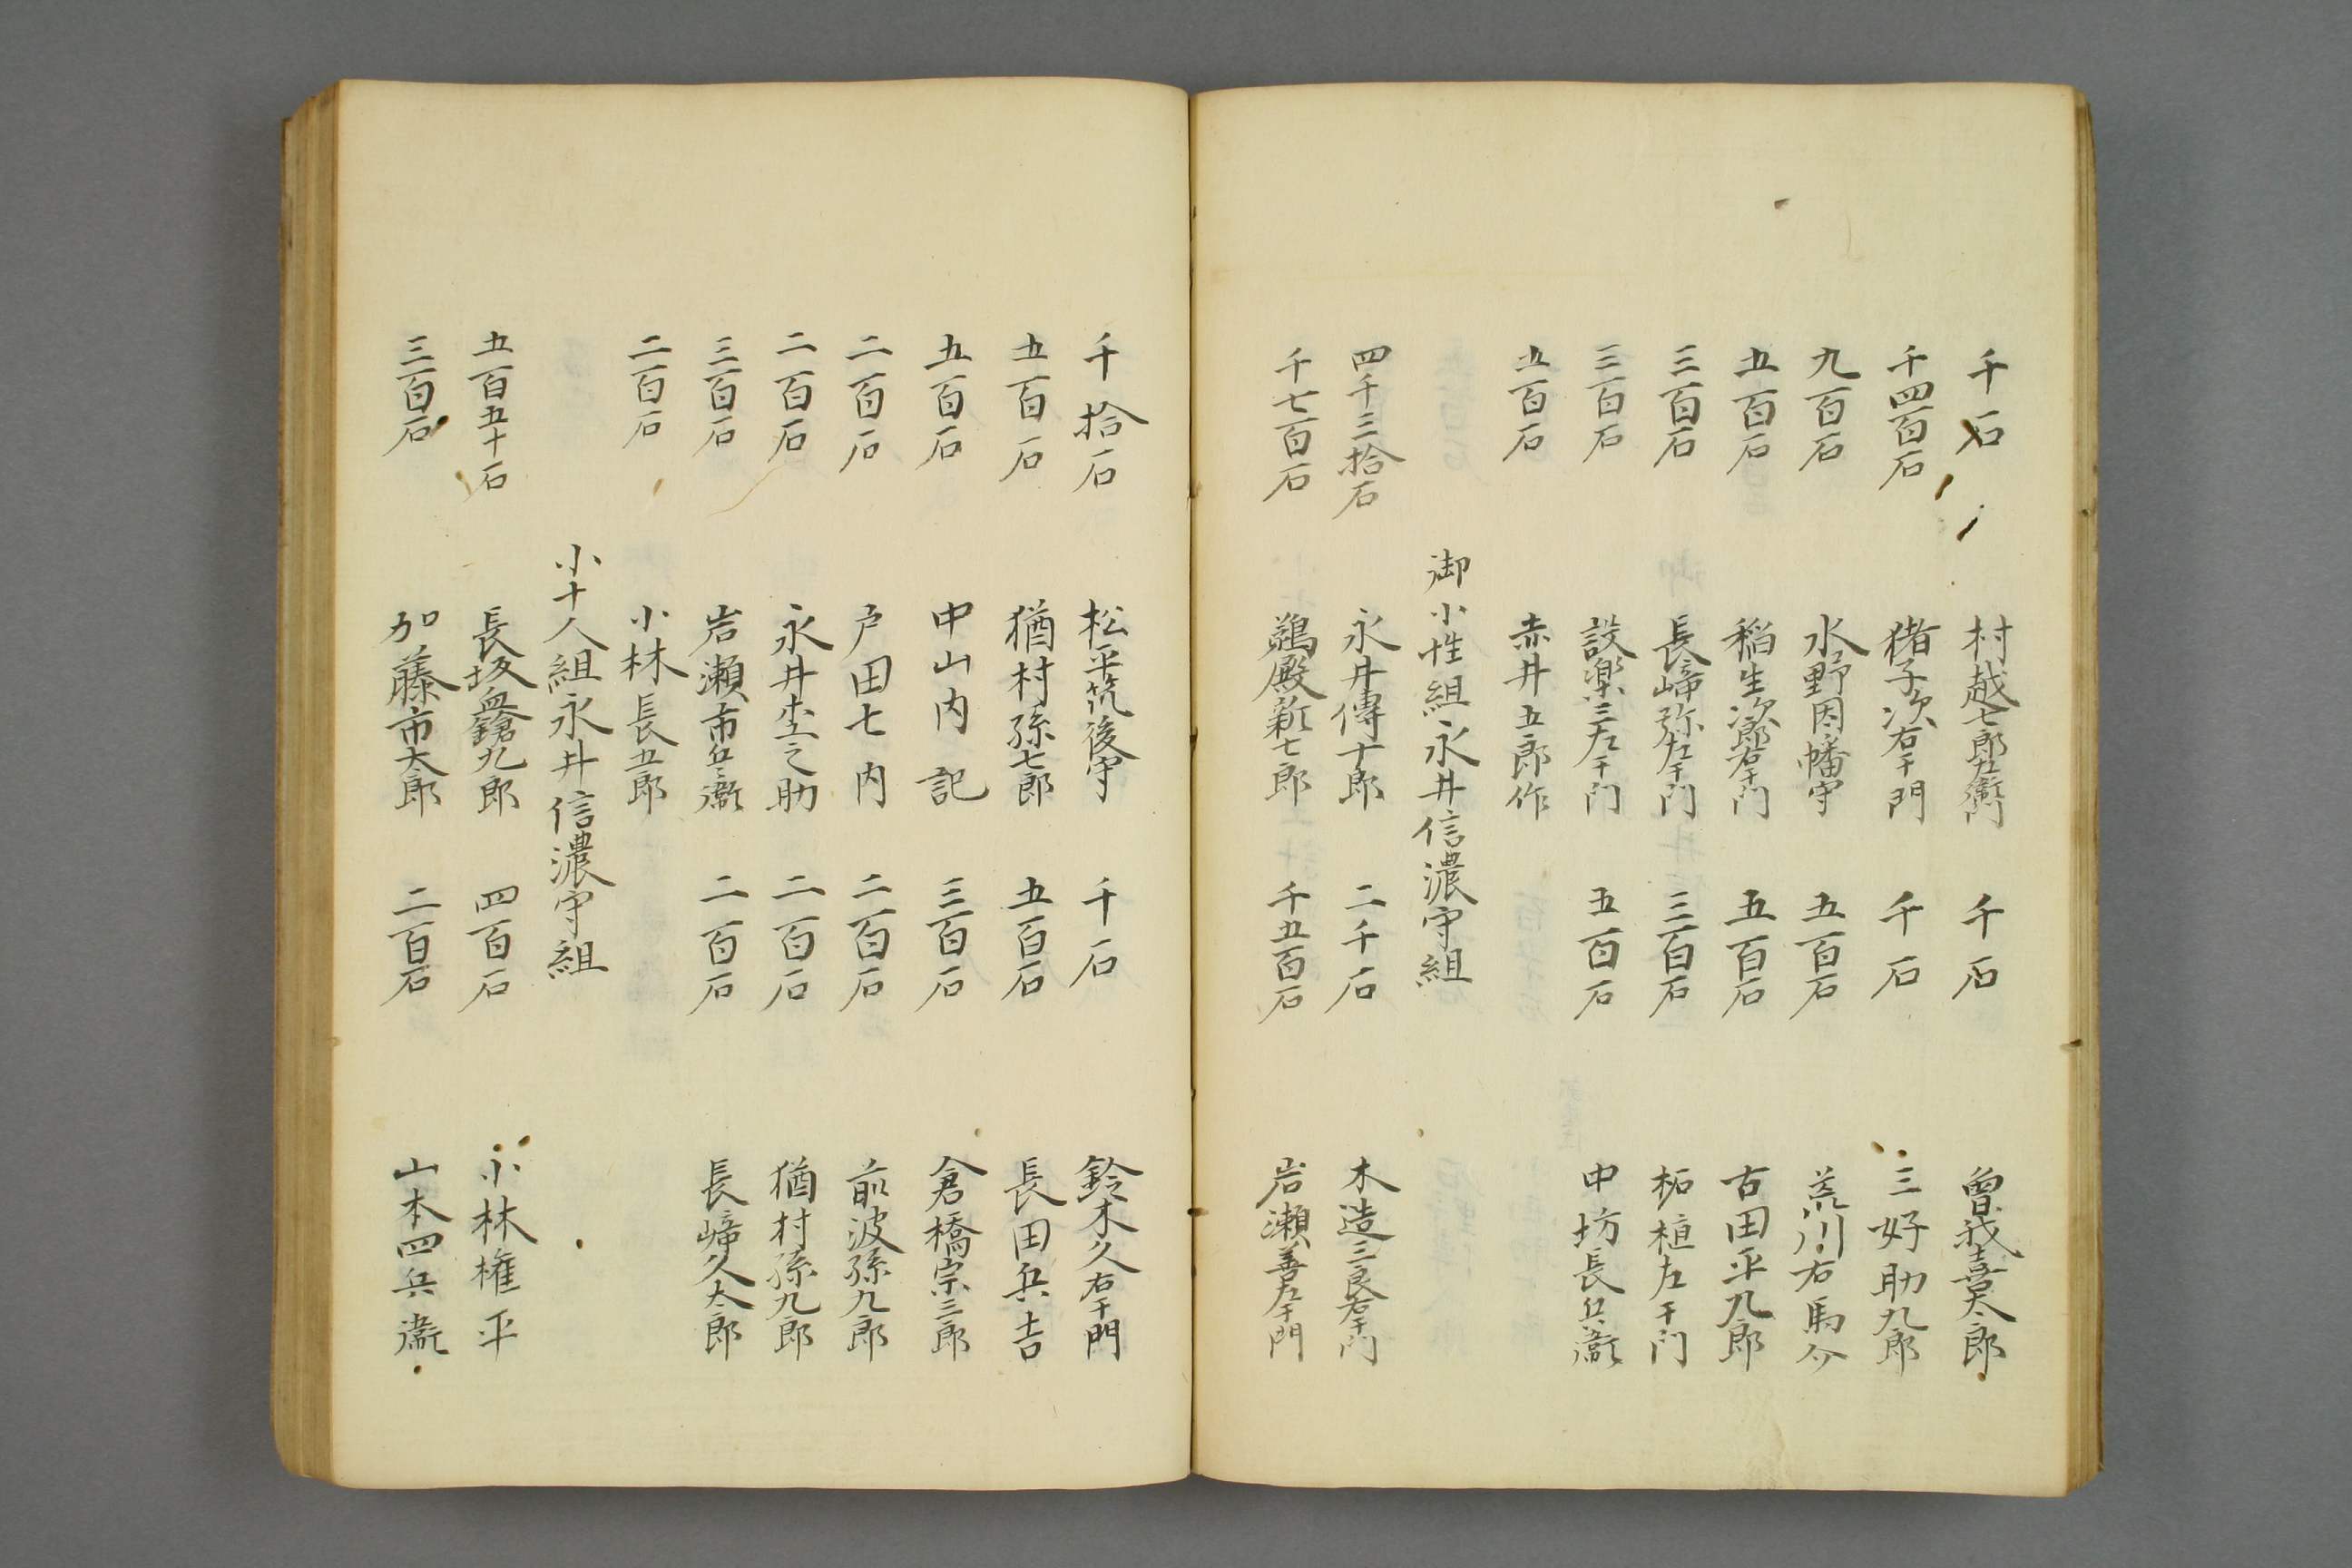 千石 村越七郎左衛門 千石 曽我喜太郎
千四百石 猪子次右干門 千石 三好助九郎
九百石 水野因幡守 五百石 荒川右馬介
五百石 稲生次郎右干門 五百石 古田平九郎
三百石 長﨑弥左干門 三百石 柘植左干门
三百石 設楽三左干门 五百石 中坊長兵衞
五百石 赤井五郎作
御小性組永井信濃守組
四千三拾石 永井傳十郎 二千石 木造三良右干门
千七百石 鵜殿新七郎 千五百石 岩瀬善左干門
千拾石 松平筑後守 千石 鈴木久右干門
五百石 猶村孫七郎 五百石 長田兵吉
五百石 中山内記 三百石 倉橋宗三郎
二百石 戸田七内 二百石 前波孫九郎
二百石 永井杢之助 二百石 猶村孫九郎
三百石 岩瀬市兵衞 二百石 長﨑久太郎
二百石 小林長五郎
小十人組永井信濃守組
五百五十石 長坂血鎗九郎 四百石 小林権平
三百石 加藤市太郎 二百石 山本四兵衞